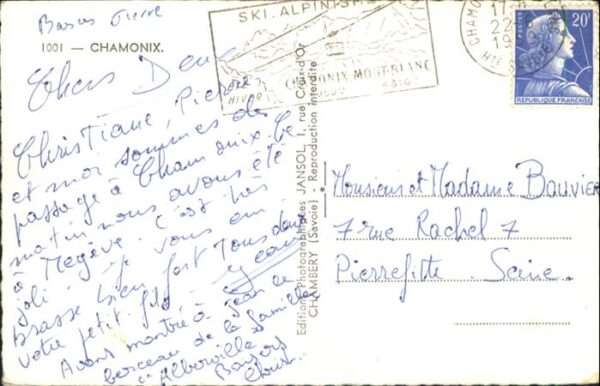 Basus Pierre
1001 — CHAMONIX.
SKI. ALPINISME
CHAMONIX MONT-BLANC
HIVER
CHAMO
17-
22-
19
HTE
POSTES
20F
REPUBLIQUE FRANÇAISE
Chers Deux
Christiane, Pierre
et moi sommes de
passage à Chamonix. Ce
matin nous avons été
à Megève c'est pas
joli. Je vous em
brasse bien fort tous deux
votre petit
Avons montré à Jean le
berceau de la famille
Alberville
Bonjour
Editions Photographiques JANSOL, 1, rue Croix-d'Or
CHAMBERY (Savoie) - Reproduction interdite
Monsieur et Madame Bouvier
7 rue Rachel 7
Pierrefitte. Seine.